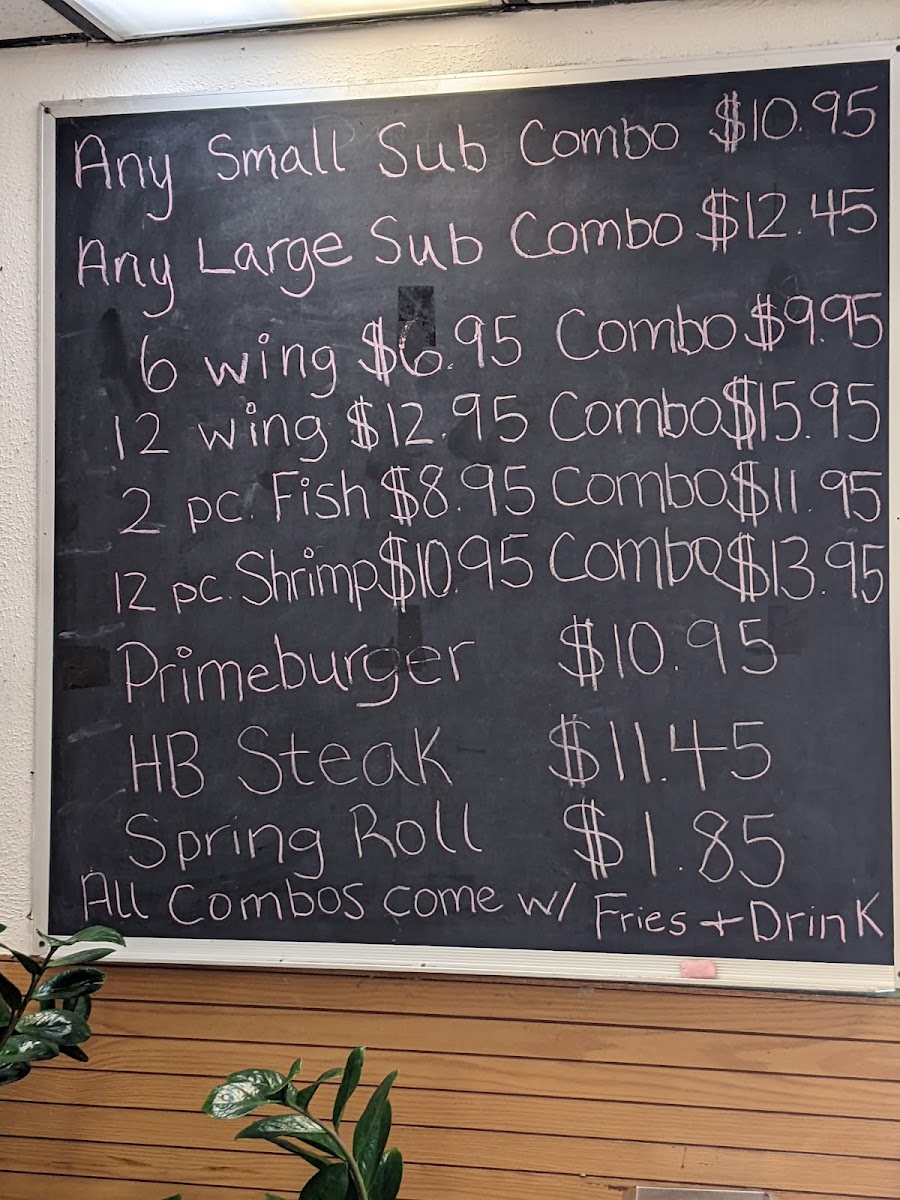 Any Small Sub Combo $10.95
Any Large Sub Combo $12.45
6 wing $6.95 Combo $9.95
12 wing $12.95 Combo $15.95
2 pc. Fish $8.95 Combo $11.95
12 pc. Shrimp $10.95 Combo $13.95
Primeburger $10.95
HB Steak $11.45
Spring Roll $1.85
All Combos come w/ Fries + Drink